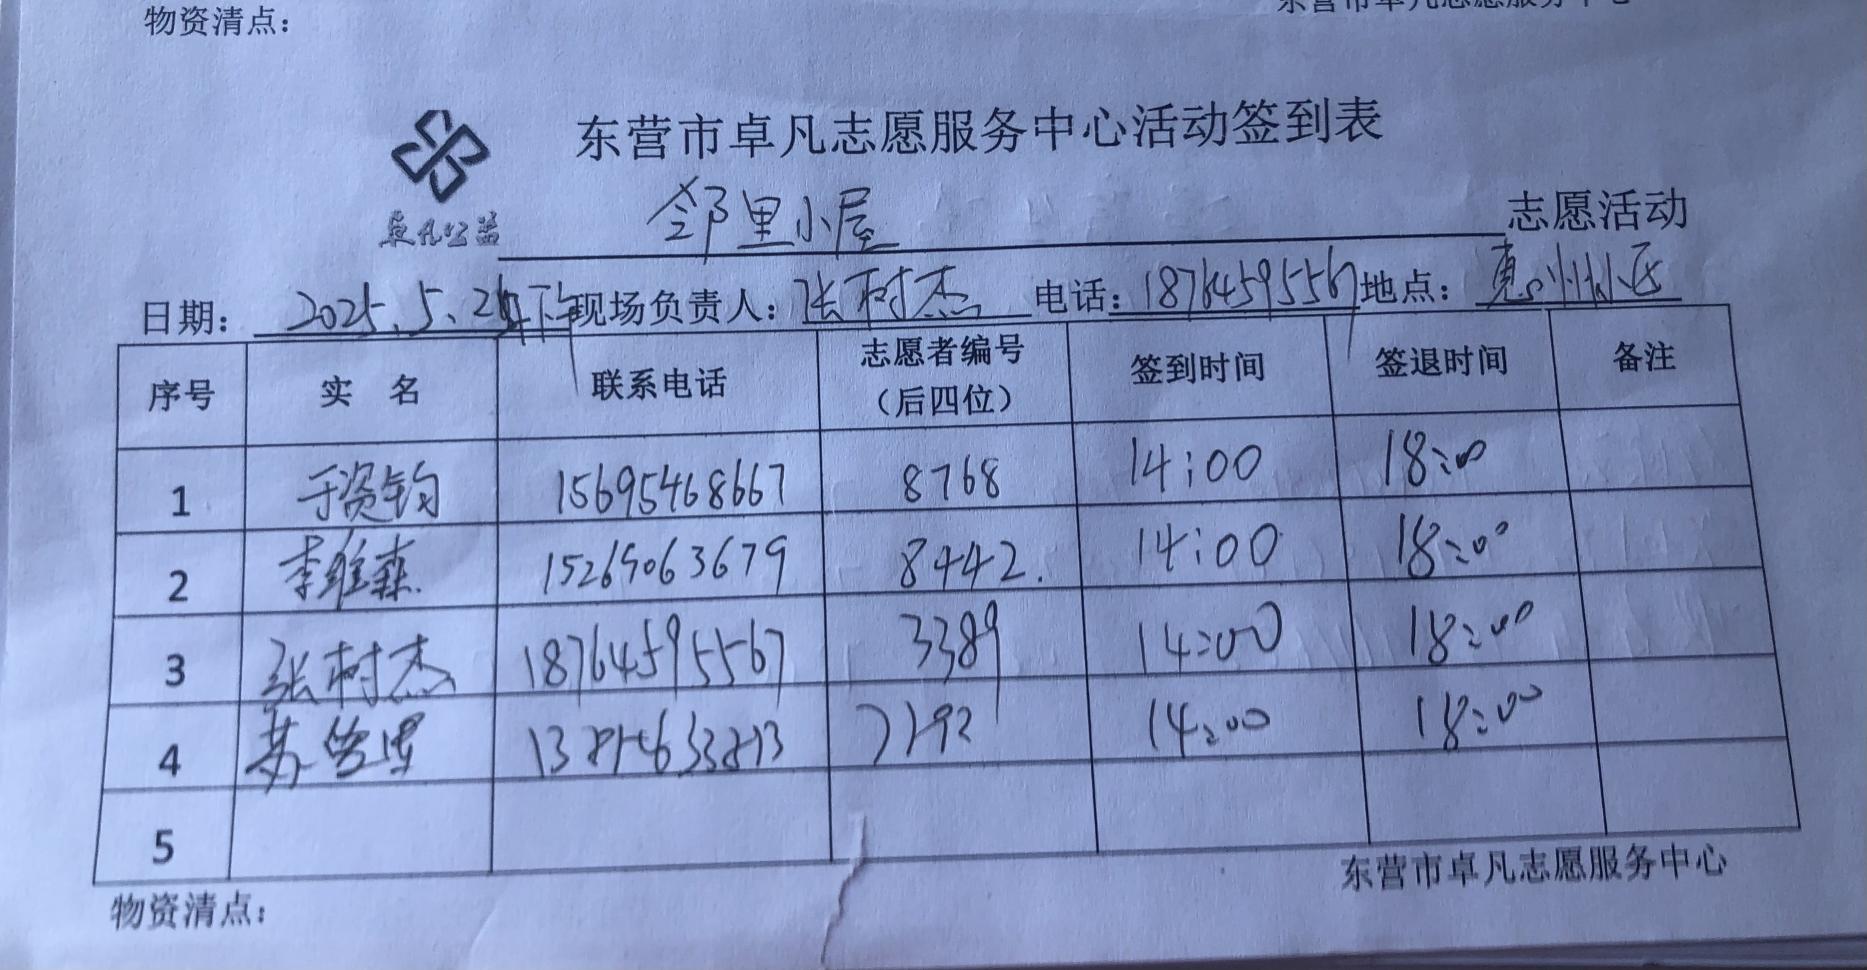 物资清点：
东营市卓凡志愿服务中心
东营市卓凡志愿服务中心活动签到表
卓凡公益
邻里小屋 志愿活动
日期： 2025.5.24下午 现场负责人：张树杰 电话：18764595567 地点：惠州小区
序号 实 名 联系电话 志愿者编号（后四位） 签到时间 签退时间 备注
1 于资钧 15695468667 8768 14:00 18:00
2 李维森 15269063679 8442. 14:00 18:00
3 张树杰 18764595567 3389 14:00 18:00
4 苏 7192 14:00 18:00
5
东营市卓凡志愿服务中心
物资清点：